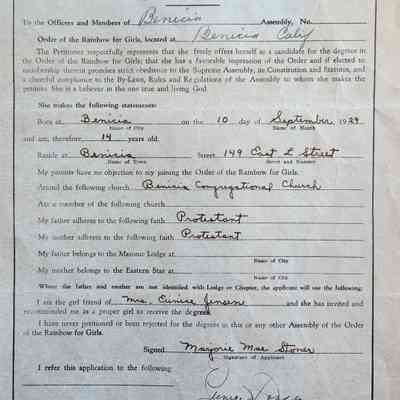 To the Officers and Members of Benicia Assembly, No.
Order of the Rainbow for Girls, located at Benicia Calif
The Petitioner respectfully represents that she freely offers herself as a candidate for the degrees in
the Order of Rainbow for Girls; that she has a favorable impression of the Order and if elected to
membership therein promises strict obedience to the Supreme Assembly, its Constitution and Statutes, and
a cheerful compliance to the By-Laws, Rules and Regulations of the Assembly to whom she makes the
petition. She is a believer in the one true and living God.
She makes the following statements:
Born at Benicia on the 10 day of September 1929
Name of City Name of Month
and am, therefore 14 years old.
Reside at Benicia Street 149 East L Street
Name of Town Street and Number
My parents have no objection to my joining the Order of the Rainbow for Girls.
Attend the following church Benicia Congregational Church
Am a member of the following church
My father adheres to the following faith Protestant
My mother adheres to the following faith Protestant
My father belongs to the Masonic Lodge at
Name of City
My mother belongs to the Eastern Star at
Name of City
Where the father and mother are not identified with Lodge or Chapter, the applicant will use the following:
I am the girl friend of Mrs. Jensen and she has invited and
recommended me as a proper girl to receive the degrees
I have never petitioned or been rejected for the degrees in this or any other Assembly of the Order
of the Rainbow for Girls.
Signed Marjorie Mae Stoner
Signature of Applicant
I refer this application to the following